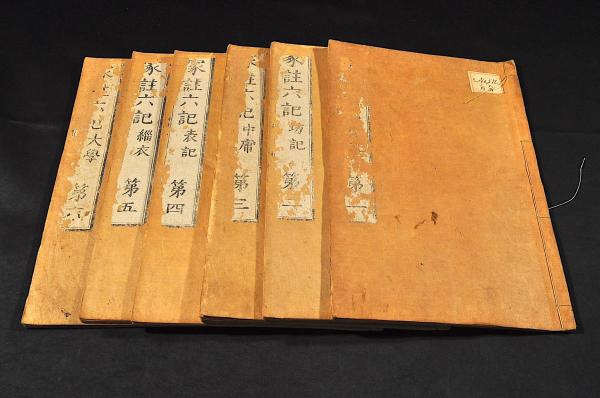 第一
家註六記坊記第
家註六記中庸第三
家註六記表記第四
家註六記緇衣第五
六記大學第六